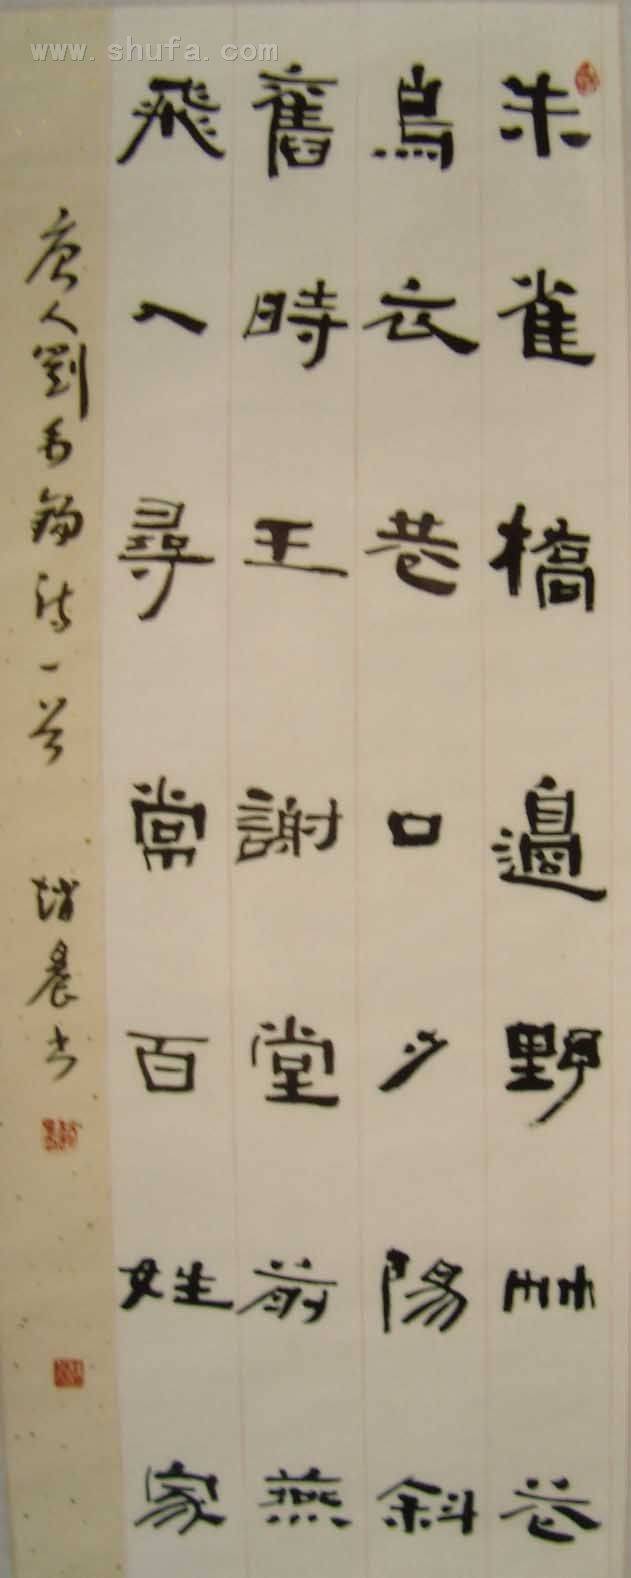 www.shufa.com
朱雀橋邊野艸花
烏衣巷口夕陽斜
舊時王謝堂前燕
飛入尋常百姓家
唐人劉禹錫詩一首 晨书